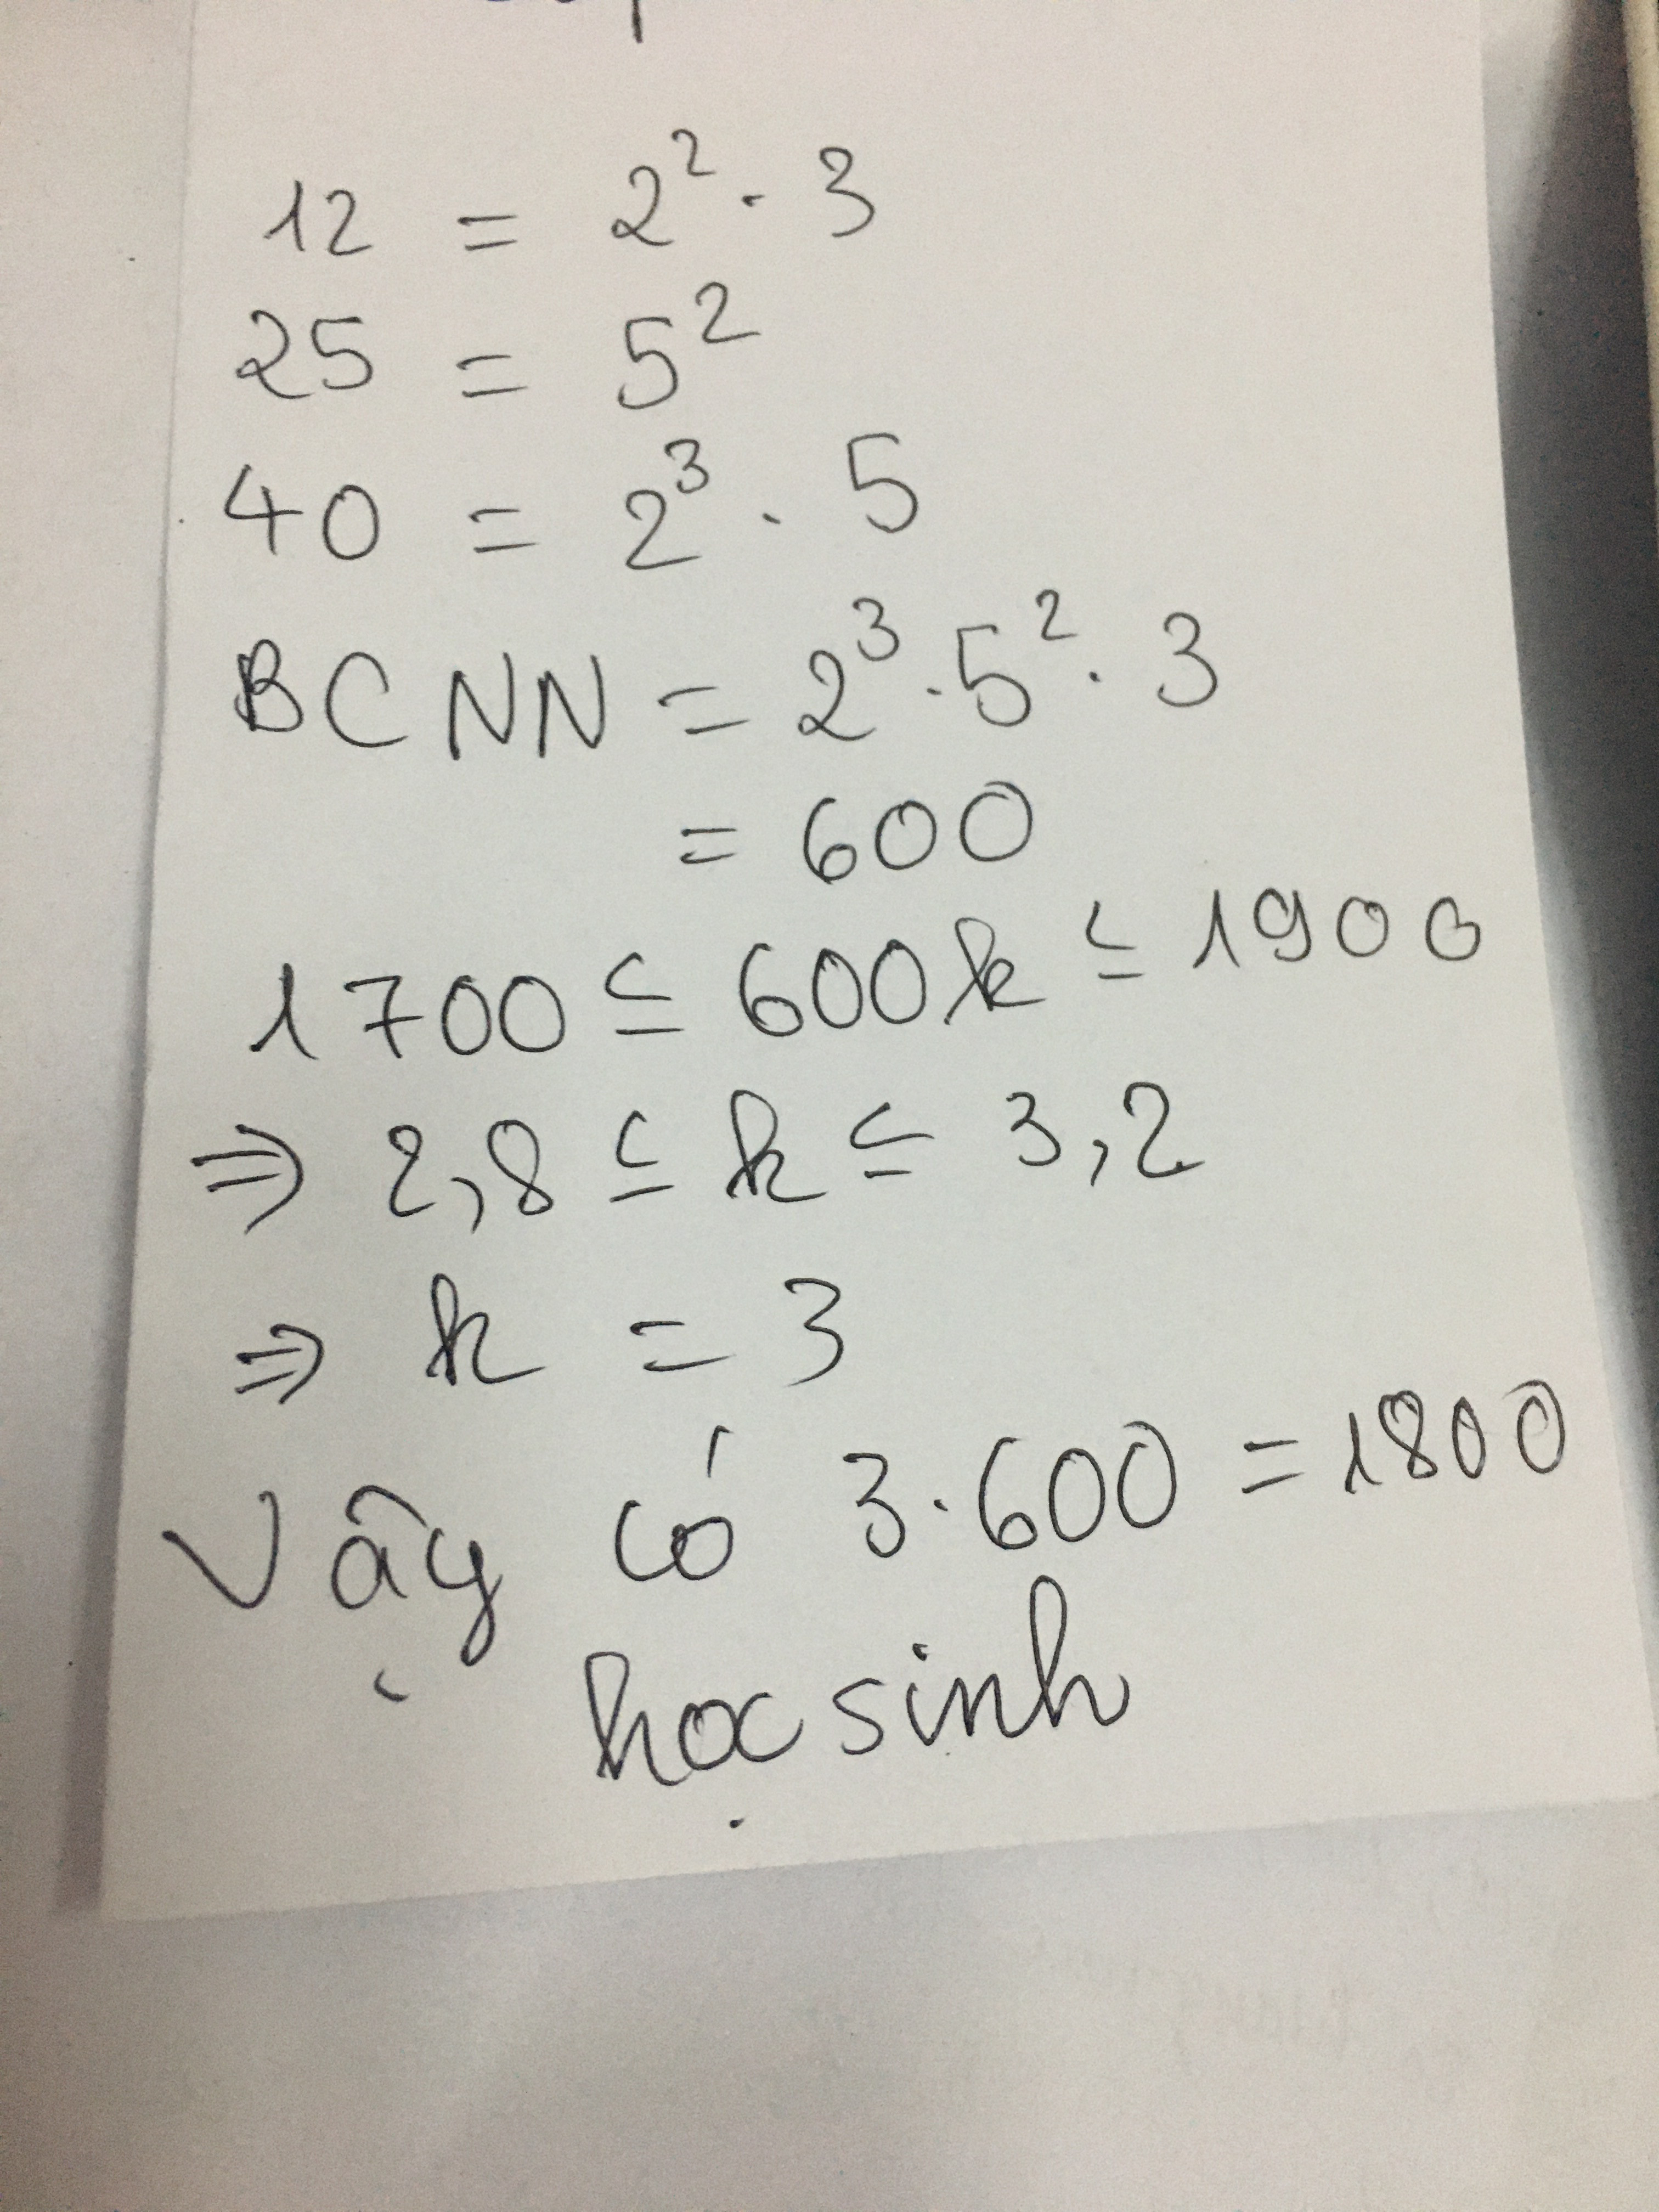 12 = 2² . 3
25 = 5²
40 = 2³ . 5
BCNN = 2³ . 5² . 3
= 600
1700 ≤ 600k ≤ 1900
⇒ 2,8 ≤ k ≤ 3,2
⇒ k = 3
Vậy có 3.600 = 1800
học sinh